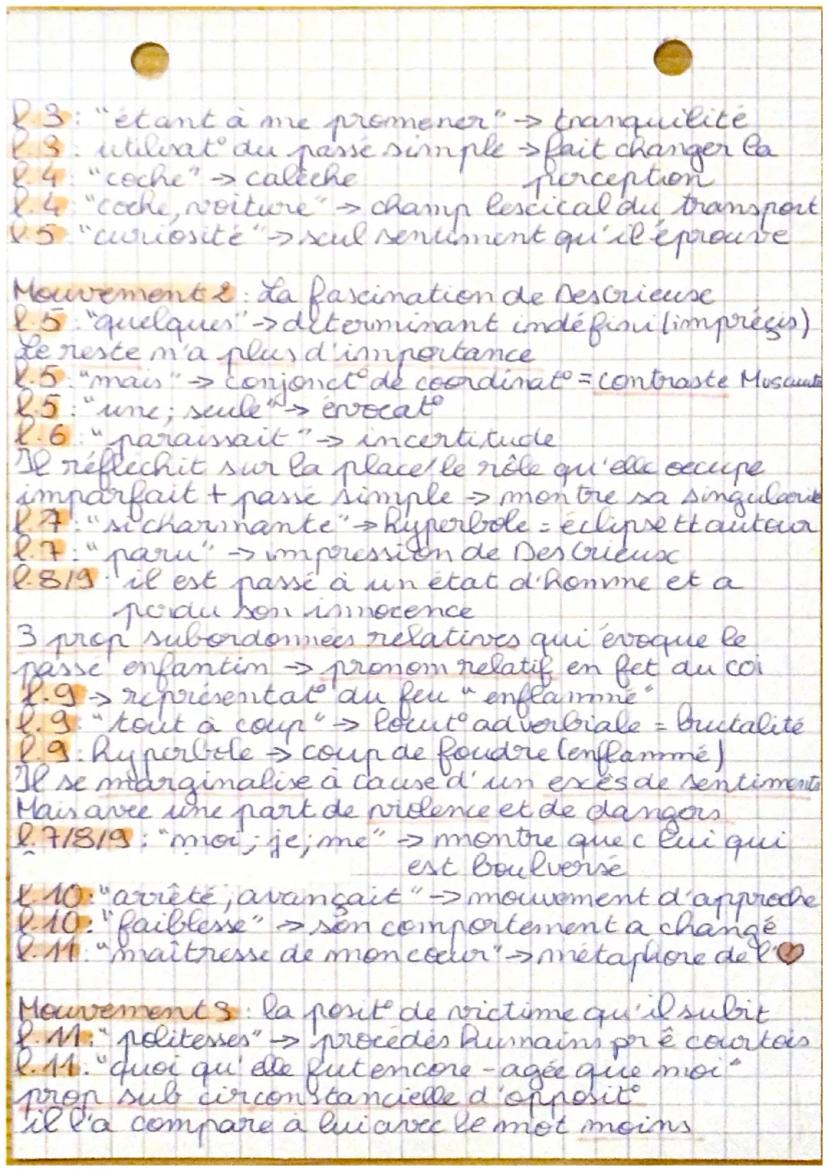 l.3 : "étant à me promener" -> tranquilité
l.3 : utilisat° du passé simple -> fait changer la
l.4 : "coche" -> calèche perception
l.4 : "coche, voiture" -> champ lescical du transport
l.5 : "curiosité" -> seul sentiment qu'il éprouve
Mouvement 2 : La fascination de Des Grieuse
l.5 : "quelques" -> déterminant indéfini (imprécis)
Le reste n'a plus d'importance
l.5 : "mais" -> conjonct° de coordinat° = contraste
l.5 : "une ; seule" -> évocat°
l.6 : "paraissait" -> incertitude
Il réfléchit sur la place/le rôle qu'elle occupe
imparfait + passé simple -> montre sa singularité
l.7 : "si charmante" -> hyperbole = éclipse tt autour
l.7 : "paru" -> impression de Des Grieux
l.8/9 : il est passé à un état d'homme et a
perdu son innocence
3 prop subordonnées relatives qui évoque le
passé enfantin -> pronom relatif en fct du coi
l.9 -> représentat° du feu "enflammé"
l.9 : "tout à coup" -> locut° adverbiale = brutalité
l.9 : hyperbole -> coup de foudre (enflammé)
Il se marginalise à cause d'un excés de sentiments
Mais avec une part de violence et de dangers
l.7/8/9 : "moi ; je ; me" -> montre que c lui qui
est boulversé
l.10 : "arrêté ; avançait" -> mouvement d'approche
l.10 : "faiblesse" -> son comportement a changé
l.11 : "maîtresse de mon cœur" -> métaphore de l'❤
Mouvement 3 : la posit° de victime qu'il subit
l.11 : "politesses" -> procédés humains pr ê courtois
l.11 : "quoi qu'elle fut encore - agée que moi"
prop sub circonstancielle d'opposit°
il l'a compare à lui avec le mot moins